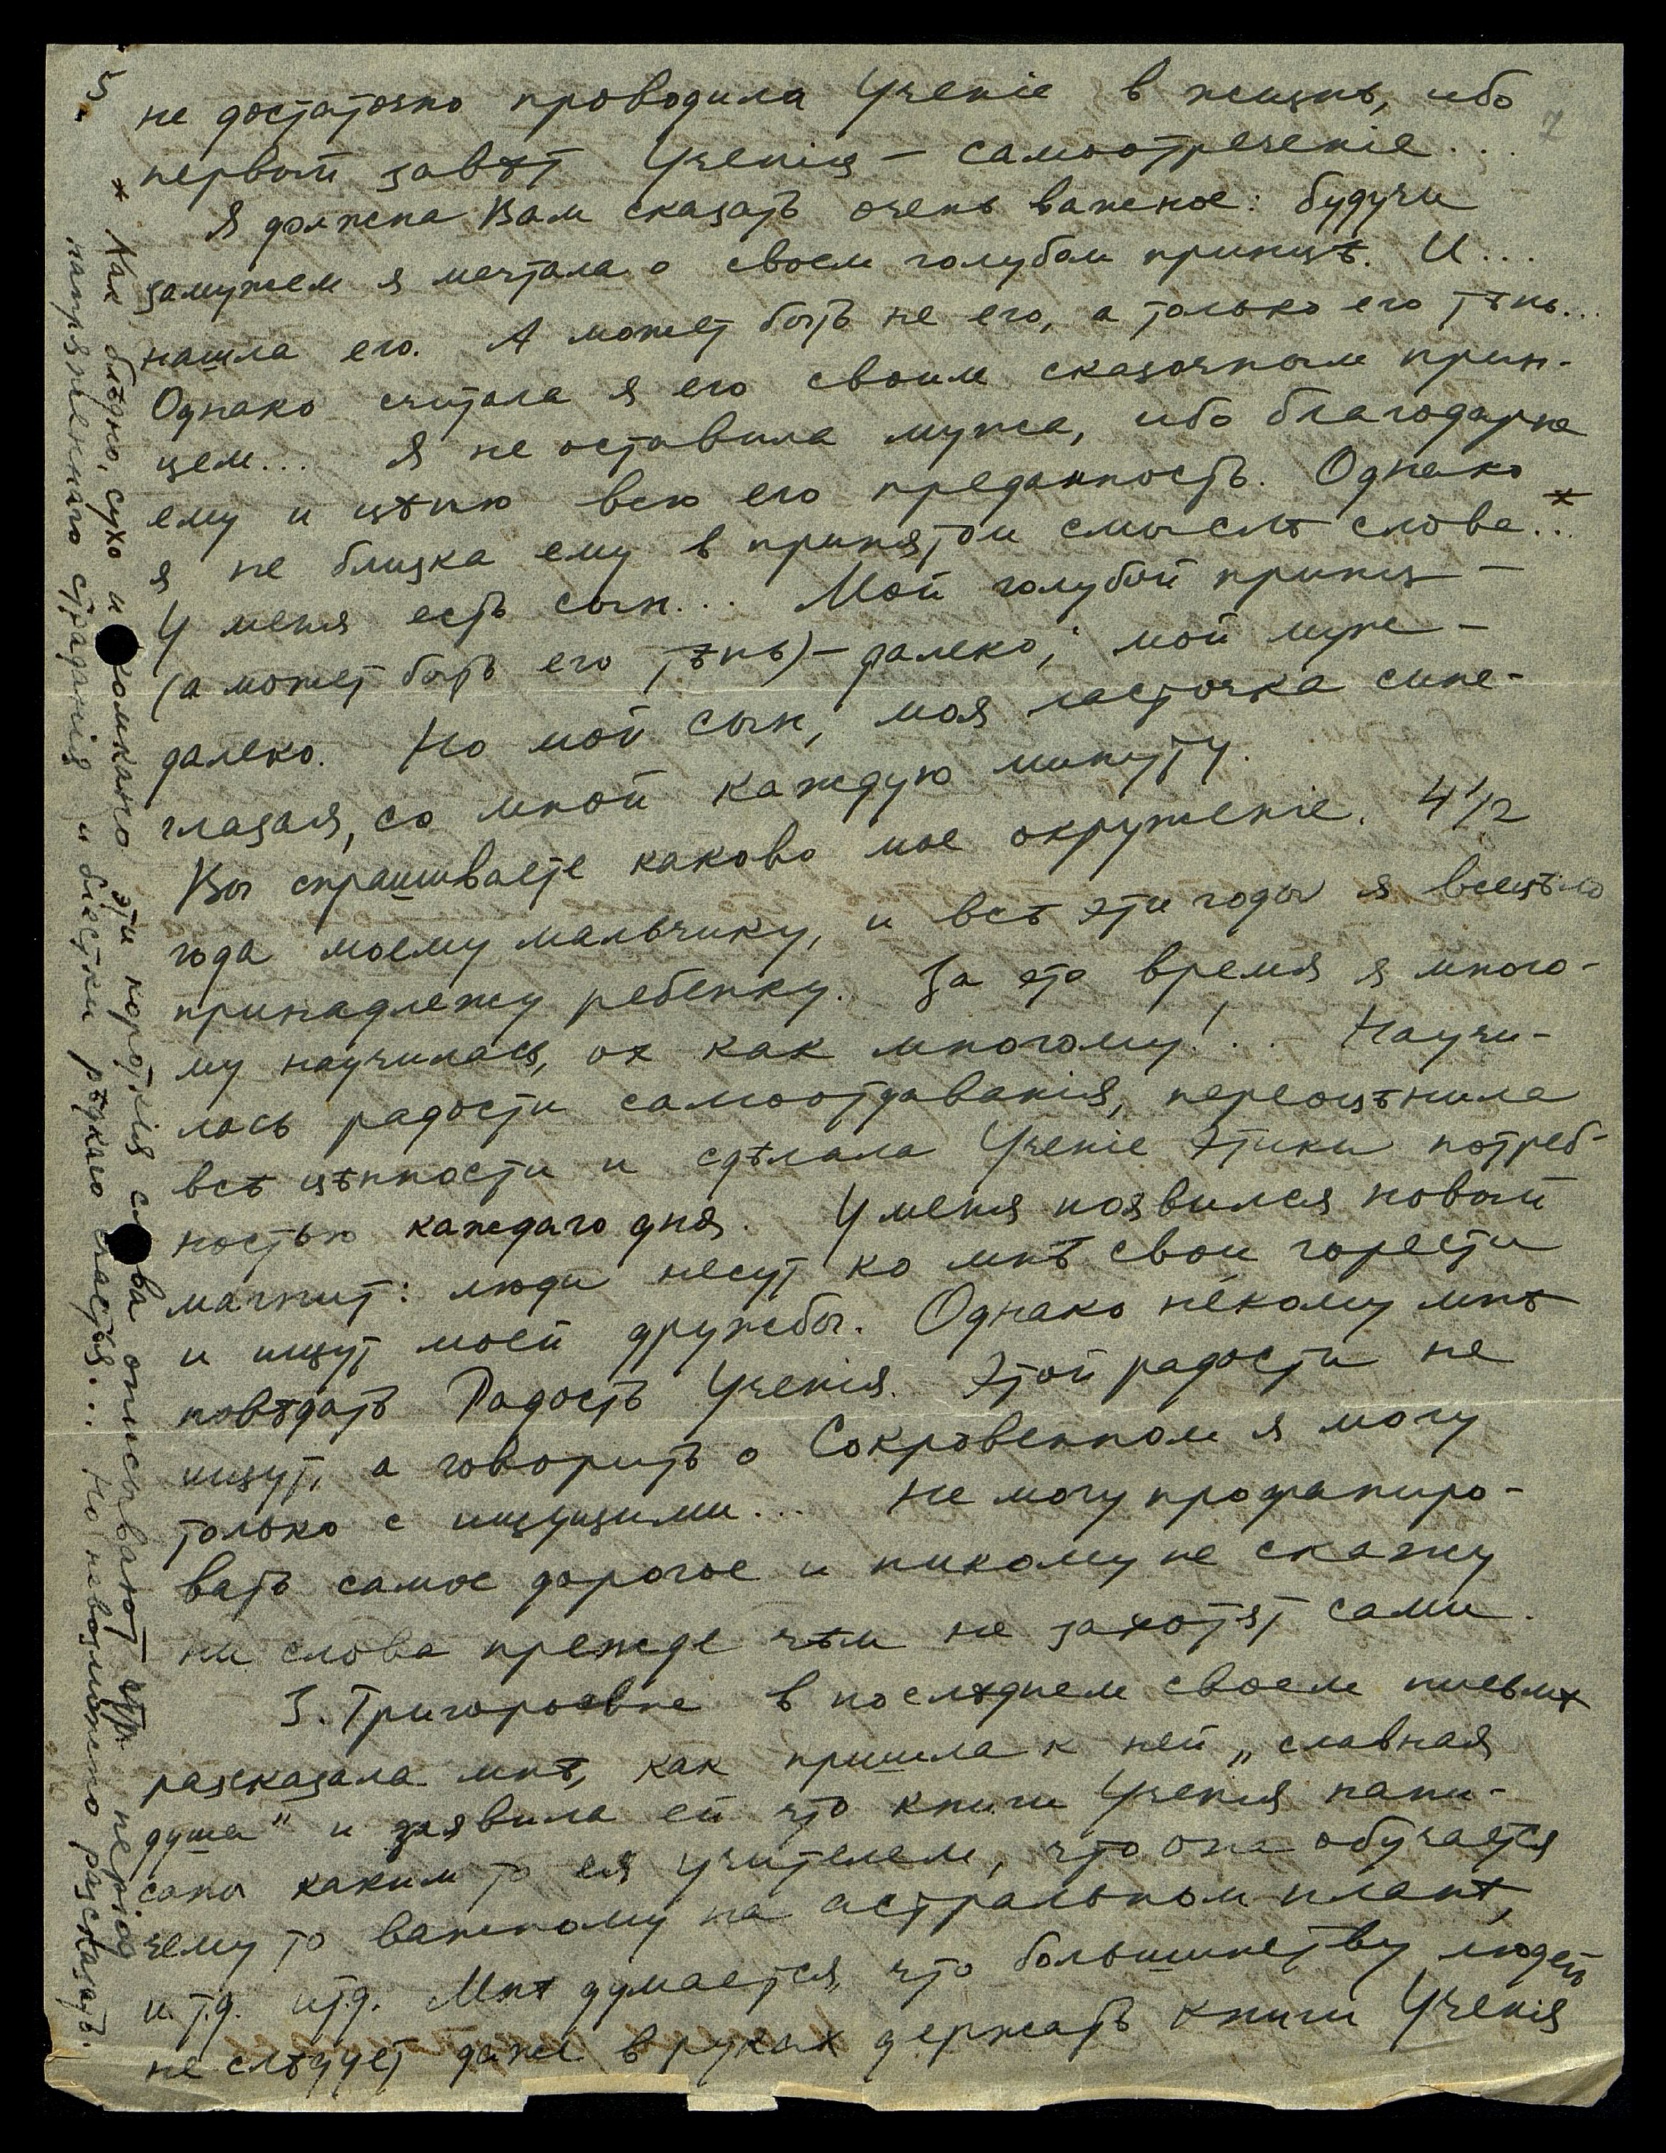 5.
7
не достаточно проводила Ученіе в жизнь, ибо
первый завѣт Ученія – самоотреченіе...
Я должна Вам сказать очень важное: будучи
замужем я мечтала о своем голубом принцѣ. И...
нашла его. А может быть не его, а только его тѣнь...
Однако считала я его своим сказочным прин-
цем... Я не оставила мужа, ибо благодарна
ему и цѣню всю его преданность. Однако
я не близка ему в принятом смыслѣ слова...*
У меня есть сын... Мой голубой принц –
(а может быть его тѣнь) – далеко; мой муж –
далеко. Но мой сын, моя ласточка сине-
глазая, со мной каждую минуту.
Вы спрашиваете каково мое окруженіе. 4 1/2
года моему мальчику, и всѣ эти годы я всецѣло
принадлежу ребенку. За это время я много-
му научилась, ох как многому!.. Научи-
лась радости самоотдаванія, переоцѣнила
всѣ цѣнности и сдѣлала Ученіе Этики потреб-
ностью каждаго дня. У меня появился новый
магнит: люди несут ко мнѣ свои горести
и ищут моей дружбы. Однако не́кому мнѣ
повѣдать Радость Ученія. Этой радости не
ищут, а говорить о Сокровенном я могу
только с ищущими... Не могу профаниро-
вать самое дорогое и никому не скажу
ни слова прежде чѣм не захотят сами.
З. Григорьевна в послѣднем своем письмѣ
разсказала мнѣ, как пришла к ней „славная
душа" и заявила ей что книги Ученія напи-
саны каким то ея учителем, что она обучается
чему то важному на астральном планѣ,
и т.д. и т.д. Мнѣ думается, что большинству людей
не слѣдует даже в руках держать книги Ученія
* Как блѣдно, сухо и скомкано эти короткія слова описывают период
напряженнаго страданія и блестки рѣдкаго счастья... Но невозможно разсказать.